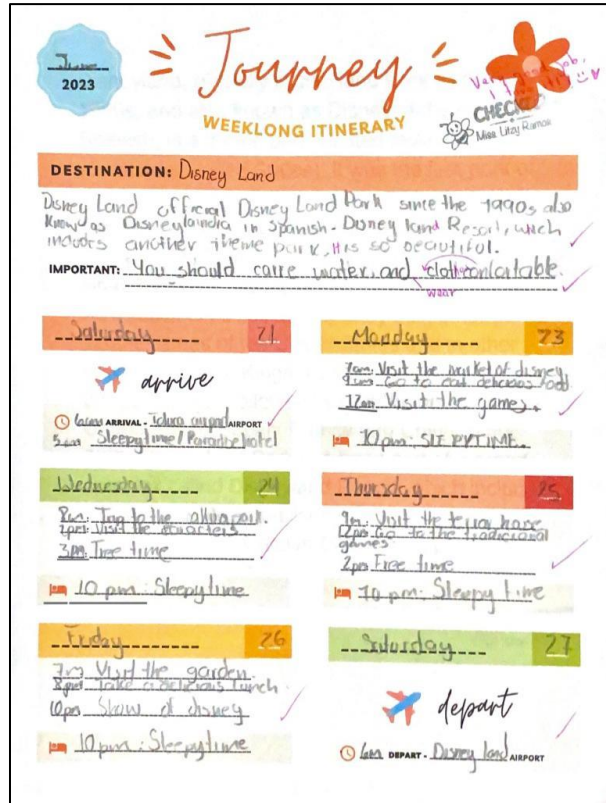 2023
Journey
WEEKLONG ITINERARY
Very good job.
CHECKED
Miss Litzy Ramos
DESTINATION: Disney Land
Disney Land official Disney Land Park since the 1990s also
Know as Disneylandia in Spanish. Disney land Resort, which
includs another theme park, It is so beautiful.
IMPORTANT: You should carre water, and comfortable.
wear
Saturday 21
arrive
ARRIVAL - Toluca airport AIRPORT
Sleepytime / Paradise hotel
Monday 23
7am: Visit the market of disney
Go to eat delicious food
12am: Visit the games.
10pm: SLEEPYTIME.
Wednesday 24
8am: to the
2pm: Visit the characters
3pm: Free time
10 pm: Sleepytime
Thursday 25
9am: Visit the
12pm: Go to the tradicional
games
2pm Free time
10 pm: Sleepy time
Friday 26
7am Visit the garden.
8pm Take a delicious lunch.
10pm Show of disney
10pm: Sleepytime
Saturday 27
depart
6am DEPART - Disney land AIRPORT